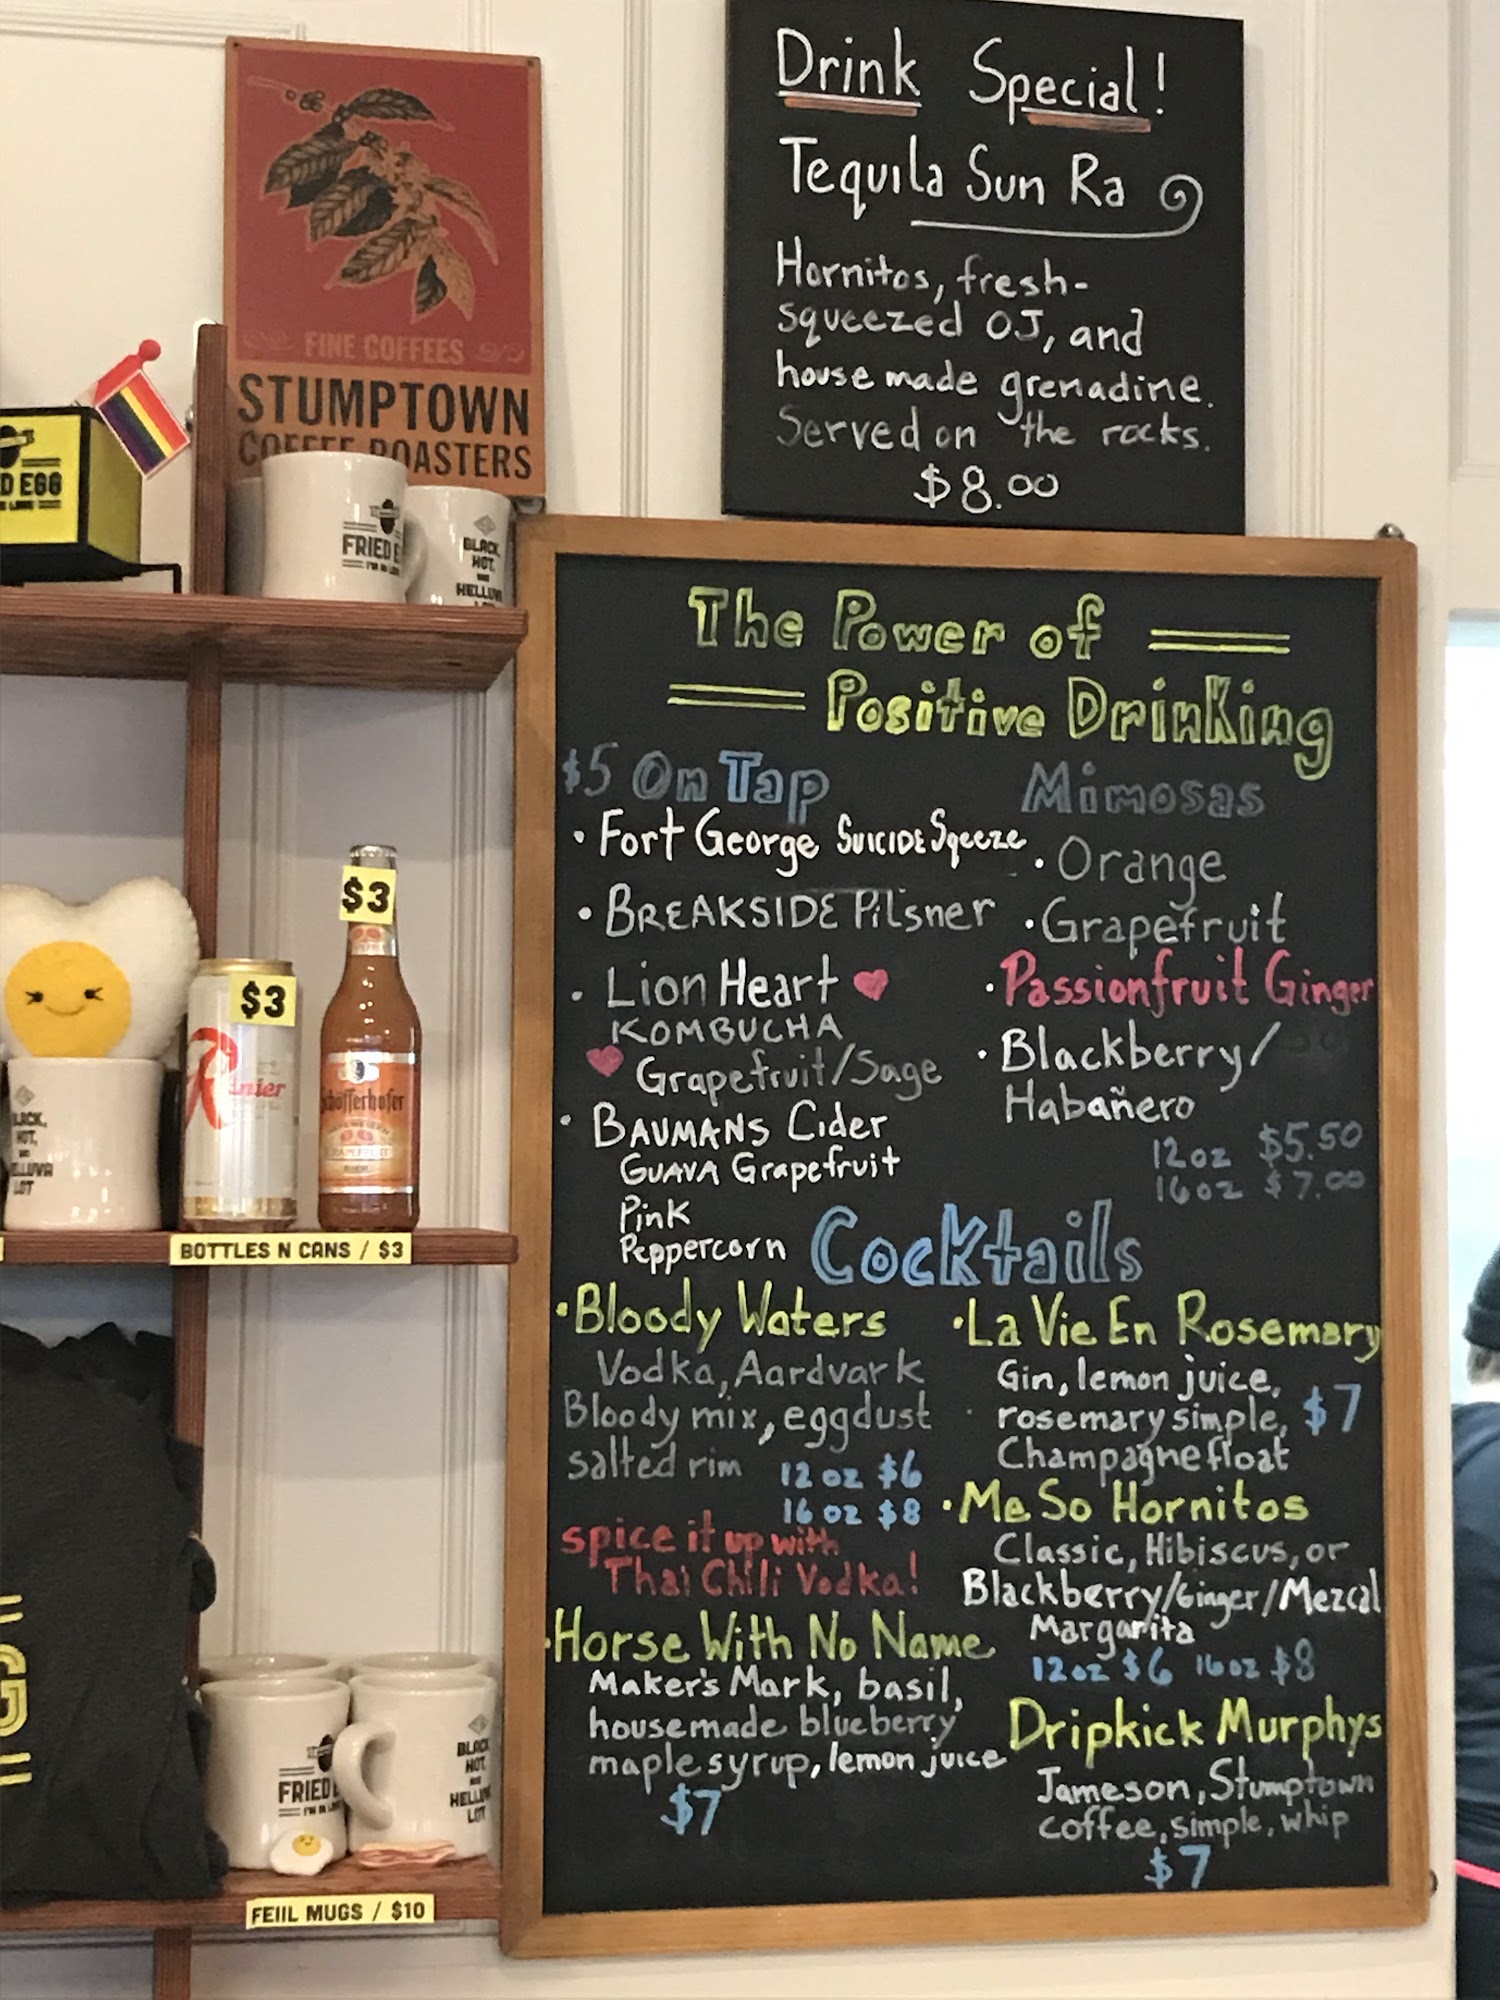 FINE COFFEES
STUMPTOWN
COFFEE ROASTERS
D EGG
FRIED E
BLACK,
HOT,
HELLUV
Drink Special!
Tequila Sun Ra
Hornitos, fresh-
squeezed OJ, and
house made grenadine.
Served on the rocks.
$8.00
The Power of
Positive Drinking
$5 On Tap
• Fort George SUICIDE Sqeeze
• BREAKSIDE Pilsner
• Lion Heart
KOMBUCHA
Grapefruit/Sage
• BAUMANS Cider
GUAVA Grapefruit
Pink
Peppercorn
Mimosas
• Orange
• Grapefruit
• Passionfruit Ginger
• Blackberry/
Habañero
12oz $5.50
16oz $7.00
Cocktails
• Bloody Waters
Vodka, Aardvark
Bloody mix, eggdust
salted rim
12 oz $6
16 oz $8
spice it up with
Thai Chili Vodka!
• Horse With No Name
Maker's Mark, basil,
housemade blueberry
maple syrup, lemon juice
$7
• La Vie En Rosemary
Gin, lemon juice,
rosemary simple, $7
Champagne float
• Me So Hornitos
Classic, Hibiscus, or
Blackberry/Ginger/Mezcal
Margarita
12oz $6 16oz $8
Dripkick Murphys
Jameson, Stumptown
coffee, simple, whip
$7
$3
$3
Rainier
Schöfferhofer
GRAPEFRUIT
LACK,
HOT,
ELLUVA
LOT
BOTTLES N CANS / $3
G
FRIED
BLACK
HOT,
HELLUV
LOT
FEIIL MUGS / $10